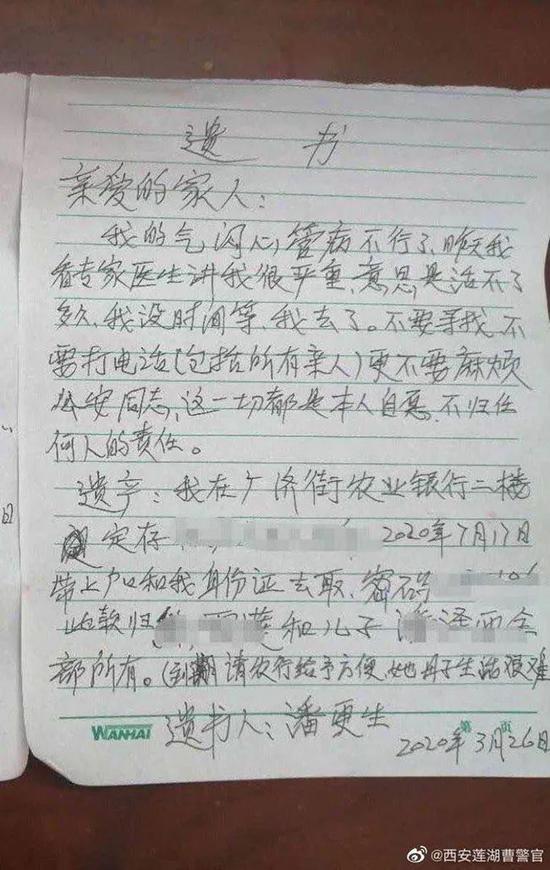 遗 书
亲爱的家人：
我的气闪心管病不行了，昨天我
看专家医生讲我很严重，意思是活不了
多久，我没时间等，我去了。不要寻找，不
要打电话（包括所有亲人）更不要麻烦
公安同志，这一切都是本人自愿，不归任
何人的责任。
遗产：我在广济街农业银行二楼
定存 2020年7月17日
带上户口和我身份证去取，密码
此款归 和儿子 全
部所有。（到期请农行给予方便，她母子生活很难
WANHAI 遗书人：潘更生
第 页
2020年3月26日
日
@西安莲湖曹警官